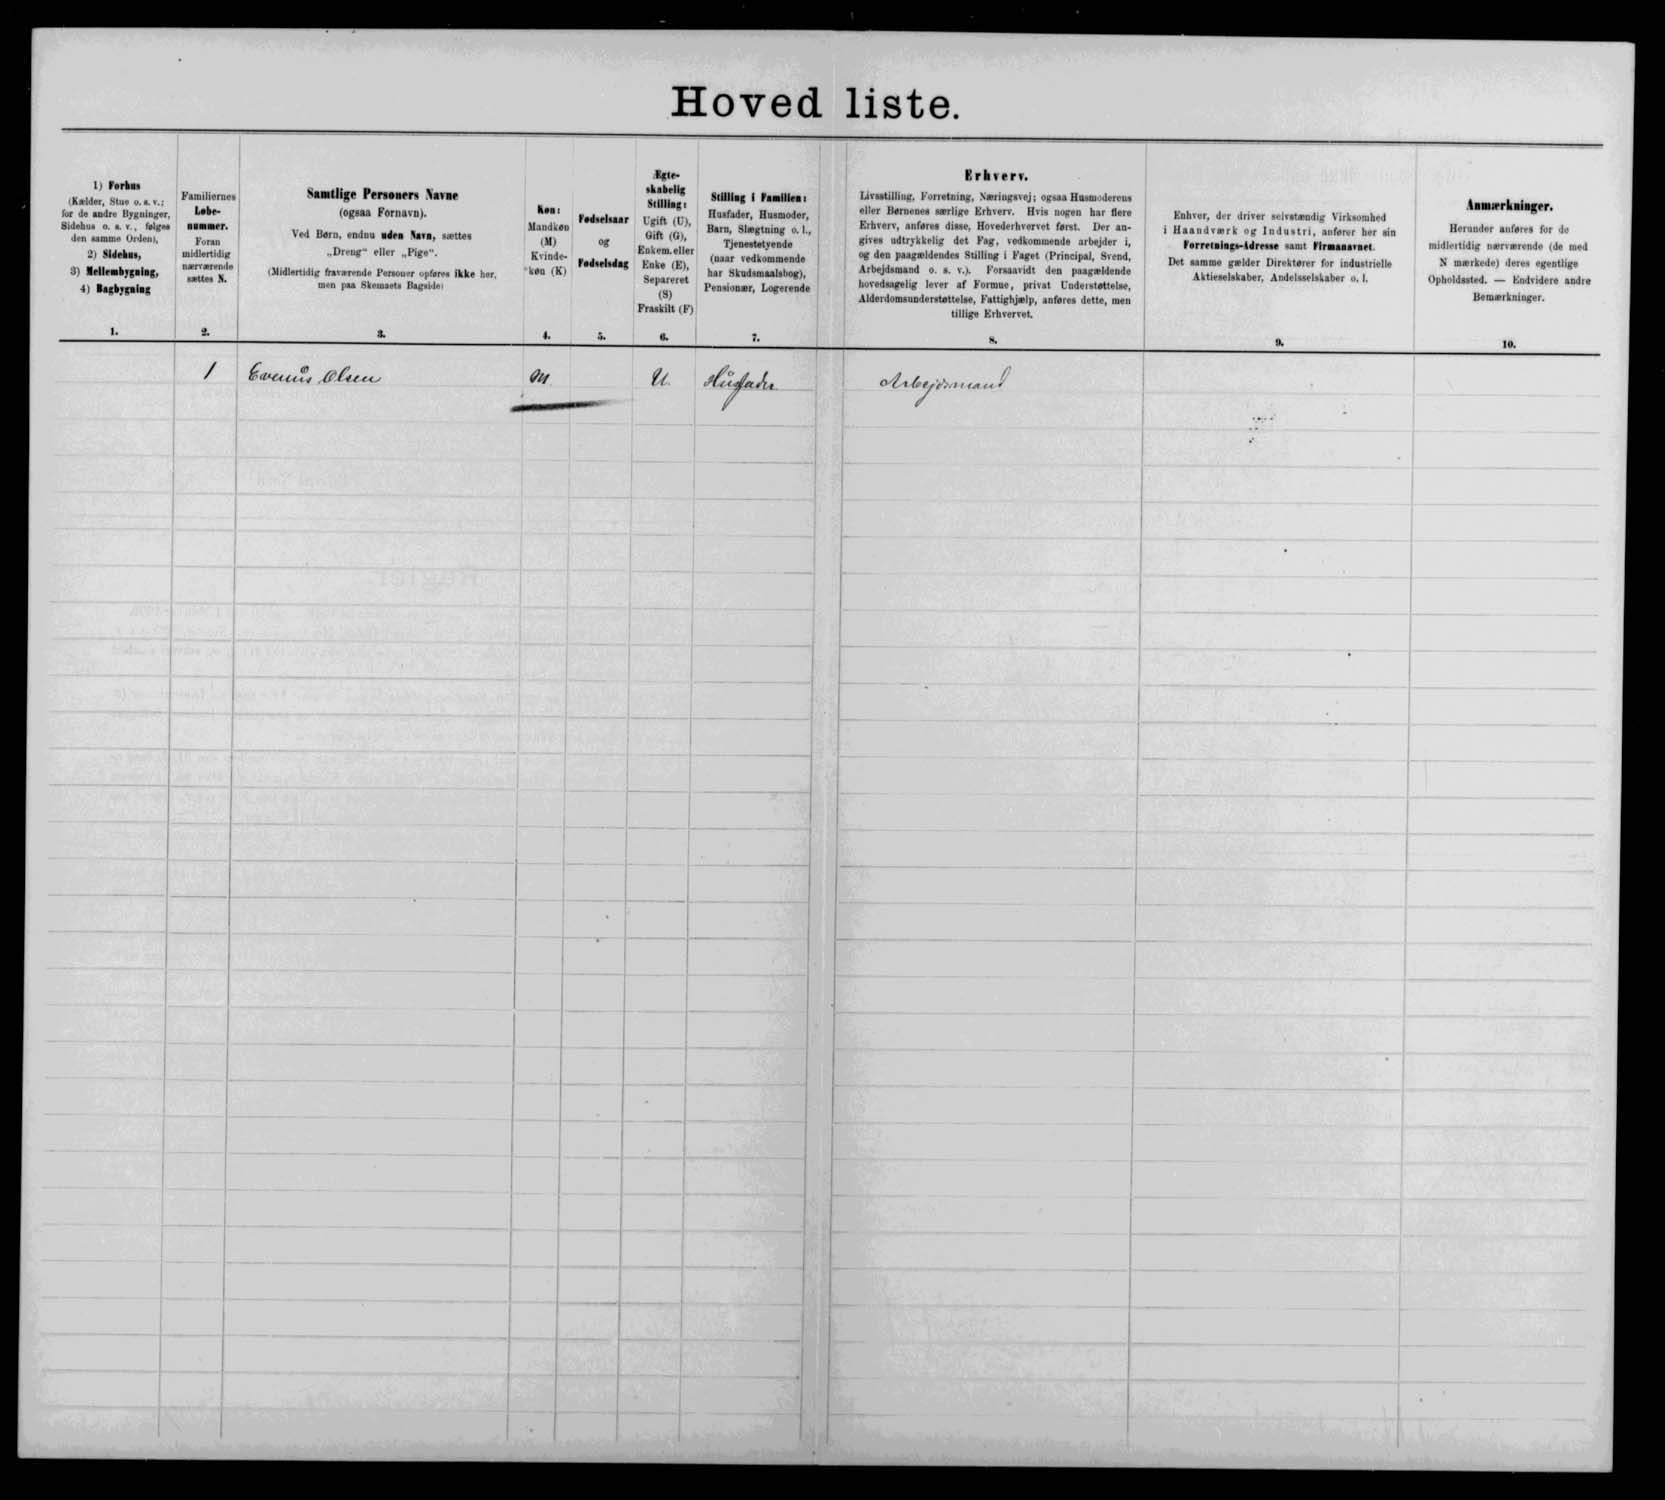 Hoved liste.
1) Forhus
(Kælder, Stue o. s. v.;
for de andre Bygninger,
Sidehus o. s. v., følges
den samme Orden),
2) Sidehus,
3) Mellembygning,
4) Bagbygning
1.
Familiernes
Løbe-
nummer.
Foran
midlertidig
nærværende
sættes N.
2.
Samtlige Personers Navne
(ogsaa Fornavn).
Ved Børn, endnu uden Navn, sættes
„Dreng“ eller „Pige“.
(Midlertidig fraværende Personer opføres ikke her,
men paa Skemaets Bagside)
3.
Køn:
Mandkøn
(M)
Kvinde-
køn (K)
4.
Fødselsaar
og
Fødselsdag
5.
Ægte-
skabelig
Stilling:
Ugift (U),
Gift (G),
Enkem. eller
Enke (E),
Separeret
(S)
Fraskilt (F)
6.
Stilling i Familien:
Husfader, Husmoder,
Barn, Slægtning o. l.,
Tjenestetyende
(naar vedkommende
har Skudsmaalsbog),
Pensionær, Logerende
7.
Erhverv.
Livsstilling, Forretning, Næringsvej; ogsaa Husmoderens
eller Børnenes særlige Erhverv. Hvis nogen har flere
Erhverv, anføres disse, Hovederhvervet først. Der an-
gives udtrykkelig det Fag, vedkommende arbejder i,
og den paagældendes Stilling i Faget (Principal, Svend,
Arbejdsmand o. s. v.). Forsaavidt den paagældende
hovedsagelig lever af Formue, privat Understøttelse,
Alderdomsunderstøttelse, Fattighjælp, anføres dette, men
tillige Erhvervet.
8.
Enhver, der driver selvstændig Virksomhed
i Haandværk og Industri, anfører her sin
Forretnings-Adresse samt Firmanavnet.
Det samme gælder Direktører for industrielle
Aktieselskaber, Andelsselskaber o. l.
9.
Anmærkninger.
Herunder anføres for de
midlertidig nærværende (de med
N mærkede) deres egentlige
Opholdssted. — Endvidere andre
Bemærkninger.
10.
1 Evenus Olsen M U. Husfader Arbejdsmand